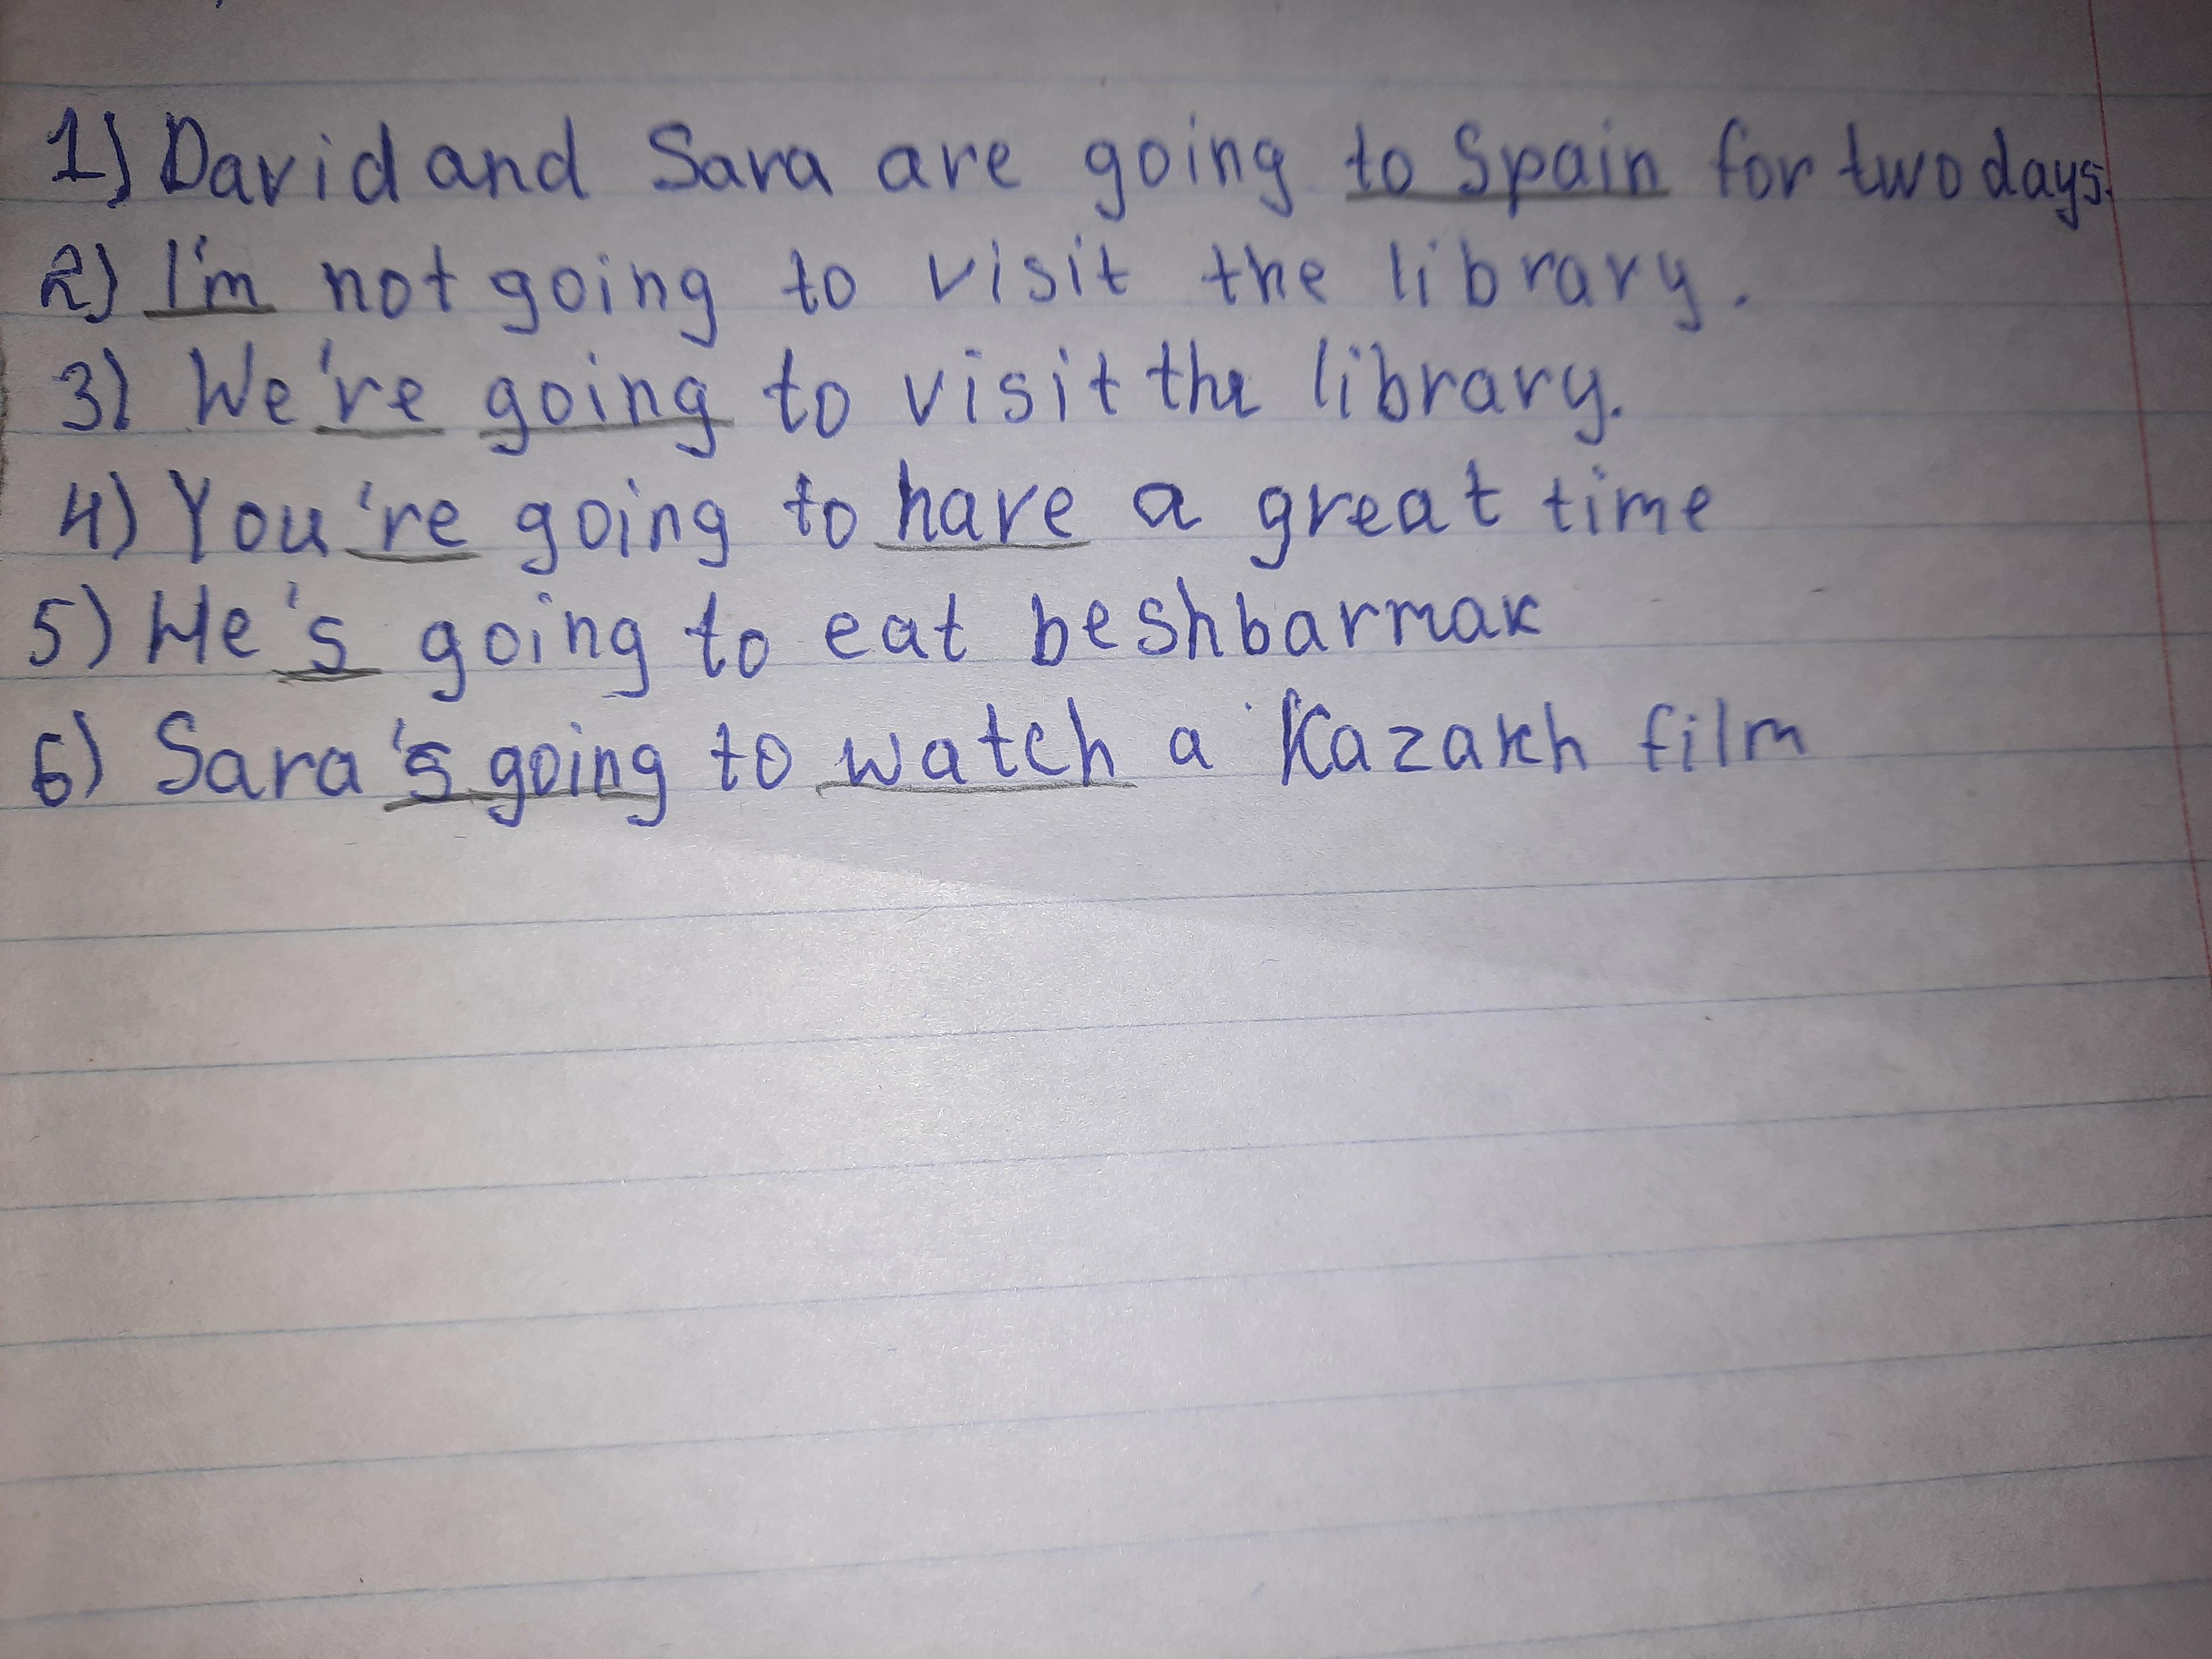 1) David and Sara are going to Spain for two days.
2) I'm not going to visit the library.
3) We're going to visit the library.
4) You're going to have a great time
5) He's going to eat beshbarmak
6) Sara's going to watch a Kazakh film